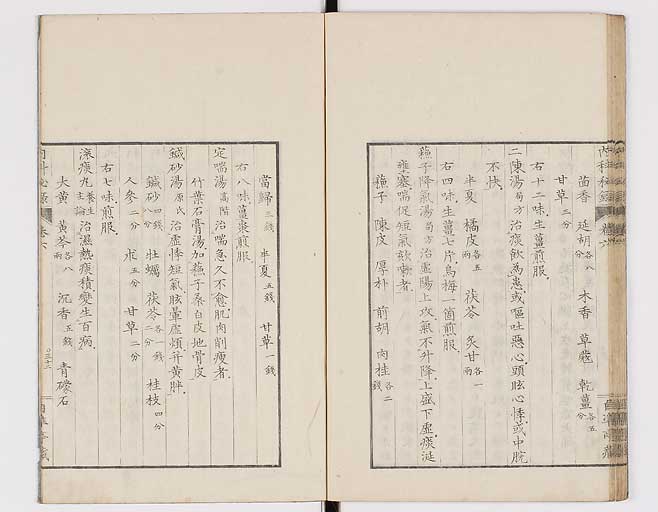 內科秘錄
茴香 延胡各八分 木香 草蔻 乾薑各五分
甘草二分
右十二味生薑煎服
二陳湯局方治痰飲為患或嘔吐惡心頭眩心悸或中脘
不快
半夏 橘皮各五兩 茯苓 炙甘各一兩
右四味生薑七片烏梅一箇煎服
蘓子降氣湯局方治虛陽上攻氣不升降上盛下虛痰涎
壅塞喘促短氣欬嗽者
蘓子 陳皮 厚朴 前胡 肉桂各二錢
當歸三錢 半夏五錢 甘草一錢
右八味薑棗煎服
定喘湯高階治喘急久不愈肌肉削瘦者
竹葉石膏湯加蘓子桑白皮地骨皮
鍼砂湯原氏治虛悸短氣眩暈虛煩并黃胖
鍼砂四錢八分 牡蠣 茯苓各一錢二分 桂枝四分
人參二分 朮五分 甘草二分
右七味煎服
滾痰丸養生主論治濕熱痰積變生百病
大黃 黃芩各八兩 沉香五錢 青礞石
內科秘錄 卷六